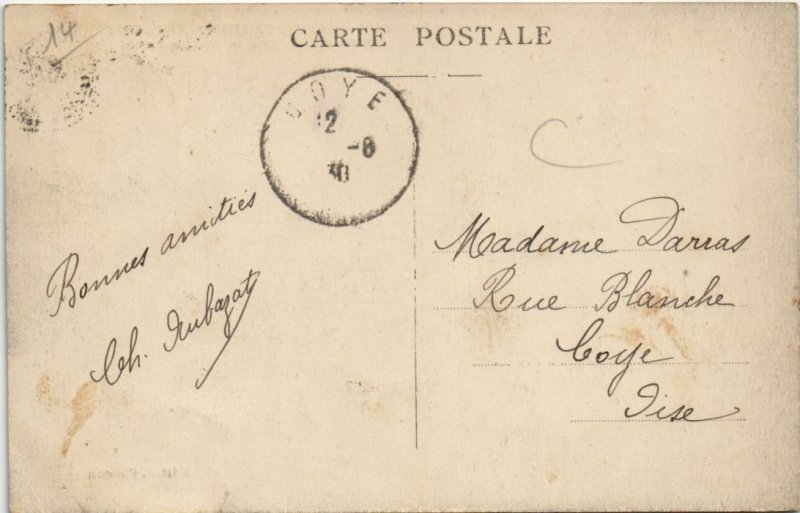 14
CARTE POSTALE
COYE
12
-8
30
Bonnes amitiés
Ch. Aubazat
Madame Darras
Rue Blanche
Coye
Oise